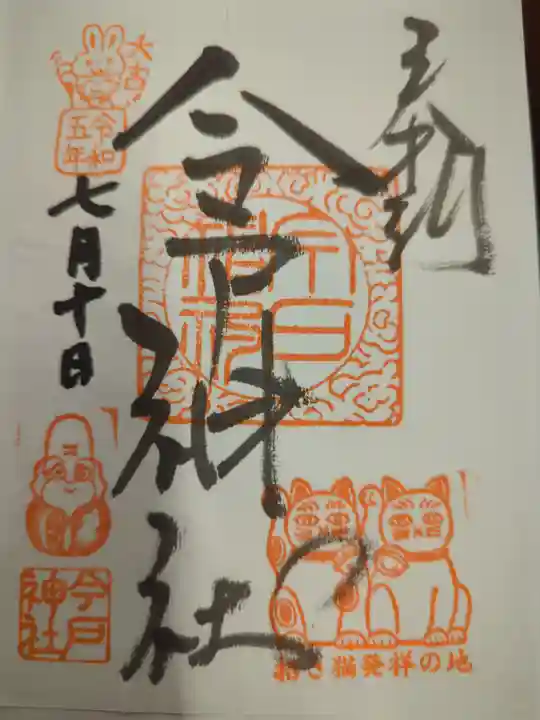 奉拝
今戸神社
大吉
令和
五年
七月十日
今戸
神社
招き猫発祥の地